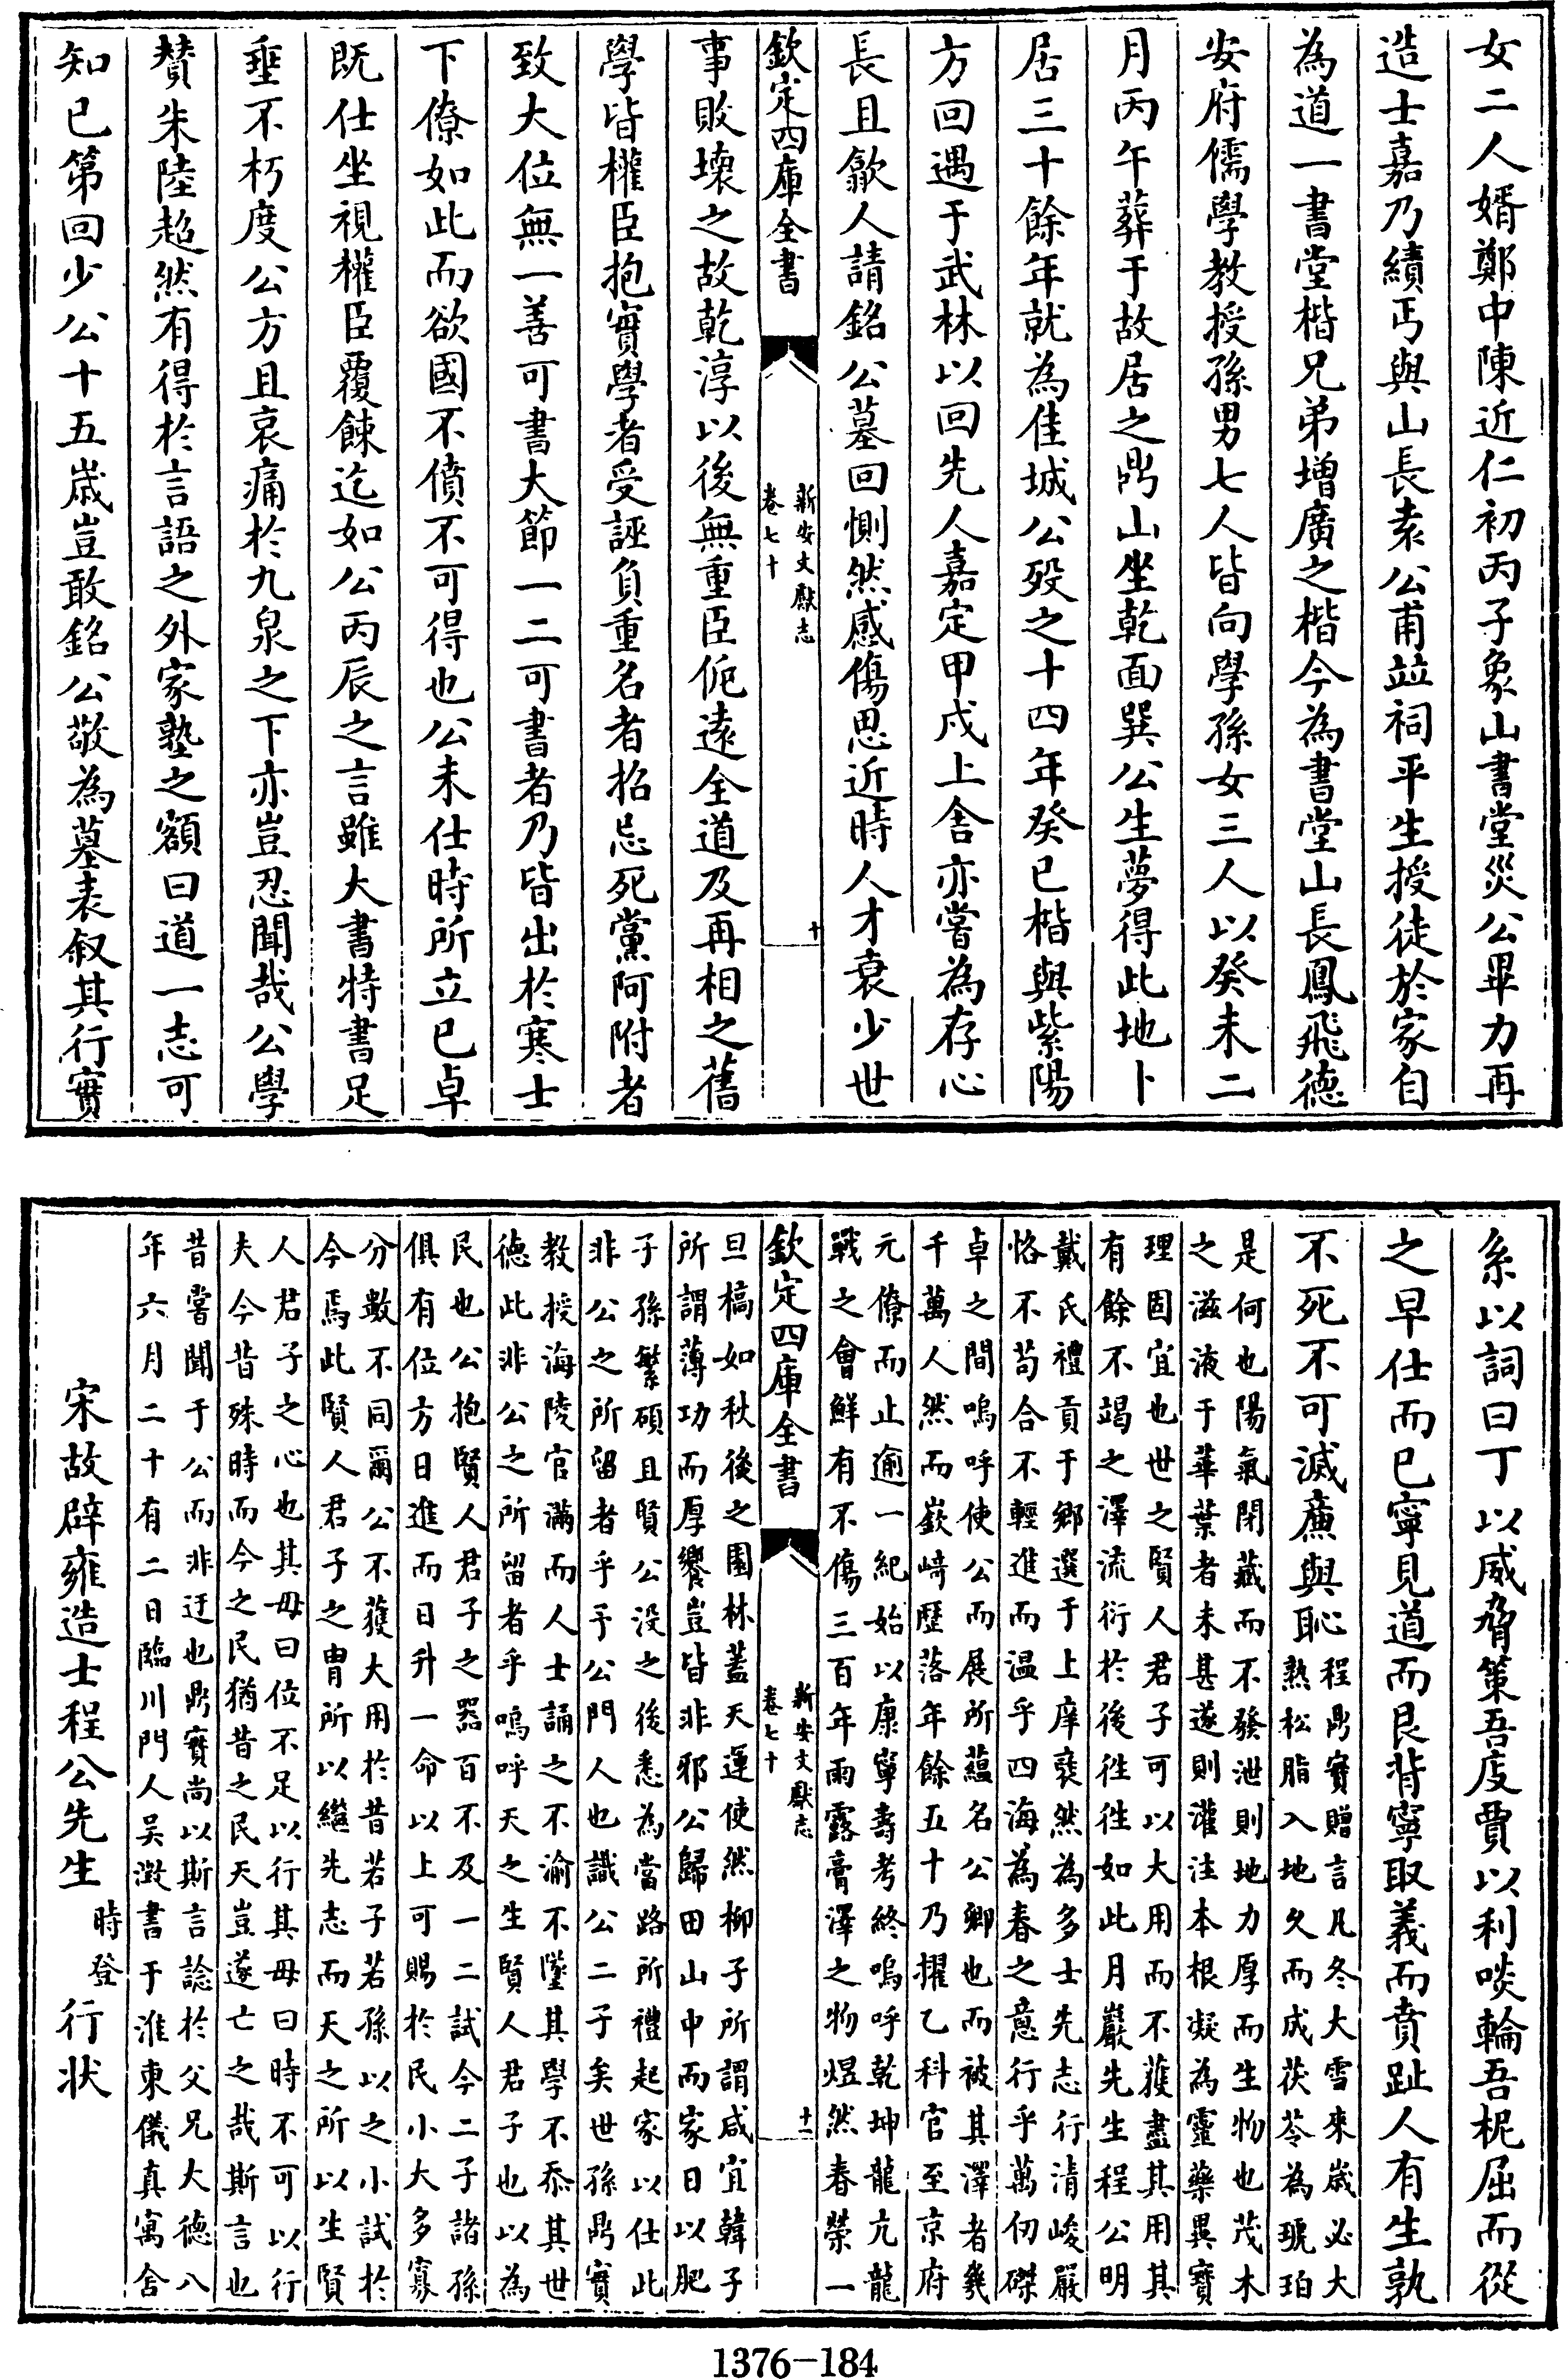 女二人婿鄭中陳近仁初丙子象山書堂災公畢力再
造士嘉乃績丐與山長袁公甫竝祠平生授徒於家自
為道一書堂楷兄弟增廣之楷今為書堂山長鳳飛德
安府儒學教授孫男七人皆向學孫女三人以癸未二
月丙午葬于故居之鼎山坐乾面巽公生夢得此地卜
居三十餘年就為佳城公殁之十四年癸巳楷與紫陽
方回遇于武林以回先人嘉定甲戌上舍亦嘗為存心
長且歙人請銘公墓回惻然感傷思近時人才衰少世
欽定四庫全書
新安文獻志
卷七十
十
事敗壞之故乾淳以後無重臣佨遠全道及再相之舊
學皆權臣抱實學者受誣負重名者招忌死黨阿附者
致大位無一善可書大節一二可書者乃皆出於寒士
下僚如此而欲國不僨不可得也公未仕時所立已卓
既仕坐視權臣覆餗迄如公丙辰之言雖大書特書足
垂不朽度公方且哀痛於九泉之下亦豈忍聞哉公學
賛朱陸超然有得於言語之外家塾之額曰道一志可
知已第回少公十五嵗豈敢銘公敬為墓表叙其行實
系以詞曰丁以威脅策吾䖍賈以利啖輪吾柅屈而從
之早仕而已寧見道而艮背寧取義而賁趾人有生孰
不死不可滅亷與恥
程鼎實贈言凡冬大雪來嵗必大
熟松脂入地久而成茯苓為琥珀
是何也陽氣閉藏而不發泄則地力厚而生物也茂木
之滋液于華葉者未甚遂則灌注本根凝為靈藥異寶
理固宜也世之賢人君子可以大用而不獲盡其用其
有餘不竭之澤流衍於後徃徃如此月巖先生程公明
戴氏禮貢于鄉選于上庠裒然為多士先志行清峻嚴
恪不苟合不輕進而温乎四海為春之意行乎萬仞磔
卓之間嗚呼使公而展所蘊名公卿也而被其澤者幾
千萬人然而嶔﨑歴落年餘五十乃擢乙科官至京府
元僚而止逾一紀始以康寧壽考終嗚呼乾坤龍亢龍
戰之會鮮有不傷三百年雨露膏澤之物煜然春榮一
欽定四庫全書
新安文獻志
卷七十
十一
旦槁如秋後之園林蓋天運使然柳子所謂咸宜韓子
所謂薄功而厚饗豈皆非邪公歸田山中而家日以肥
子孫繁碩且賢公没之後悉為當路所禮起家以仕此
非公之所留者乎予公門人也識公二子矣世孫鼎實
教授海陵官滿而人士誦之不渝不墜其學不忝其世
德此非公之所留者乎嗚呼天之生賢人君子也以為
民也公抱賢人君子之器百不及一二試今二子諸孫
俱有位方日進而日升一命以上可賜於民小大多寡
分數不同爾公不獲大用於昔若子若孫以之小試於
今焉此賢人君子之胄所以繼先志而天之所以生賢
人君子之心也其毋曰位不足以行其毋曰時不可以行
夫今昔殊時而今之民猶昔之民天豈遂亡之哉斯言也
昔嘗聞于公而非迂也鼎實尚以斯言諗於父兄大德八
年六月二十有二日臨川門人吴澂書于淮東儀真寓舍
宋故辟雍造士程公先生時登行状
1376-184